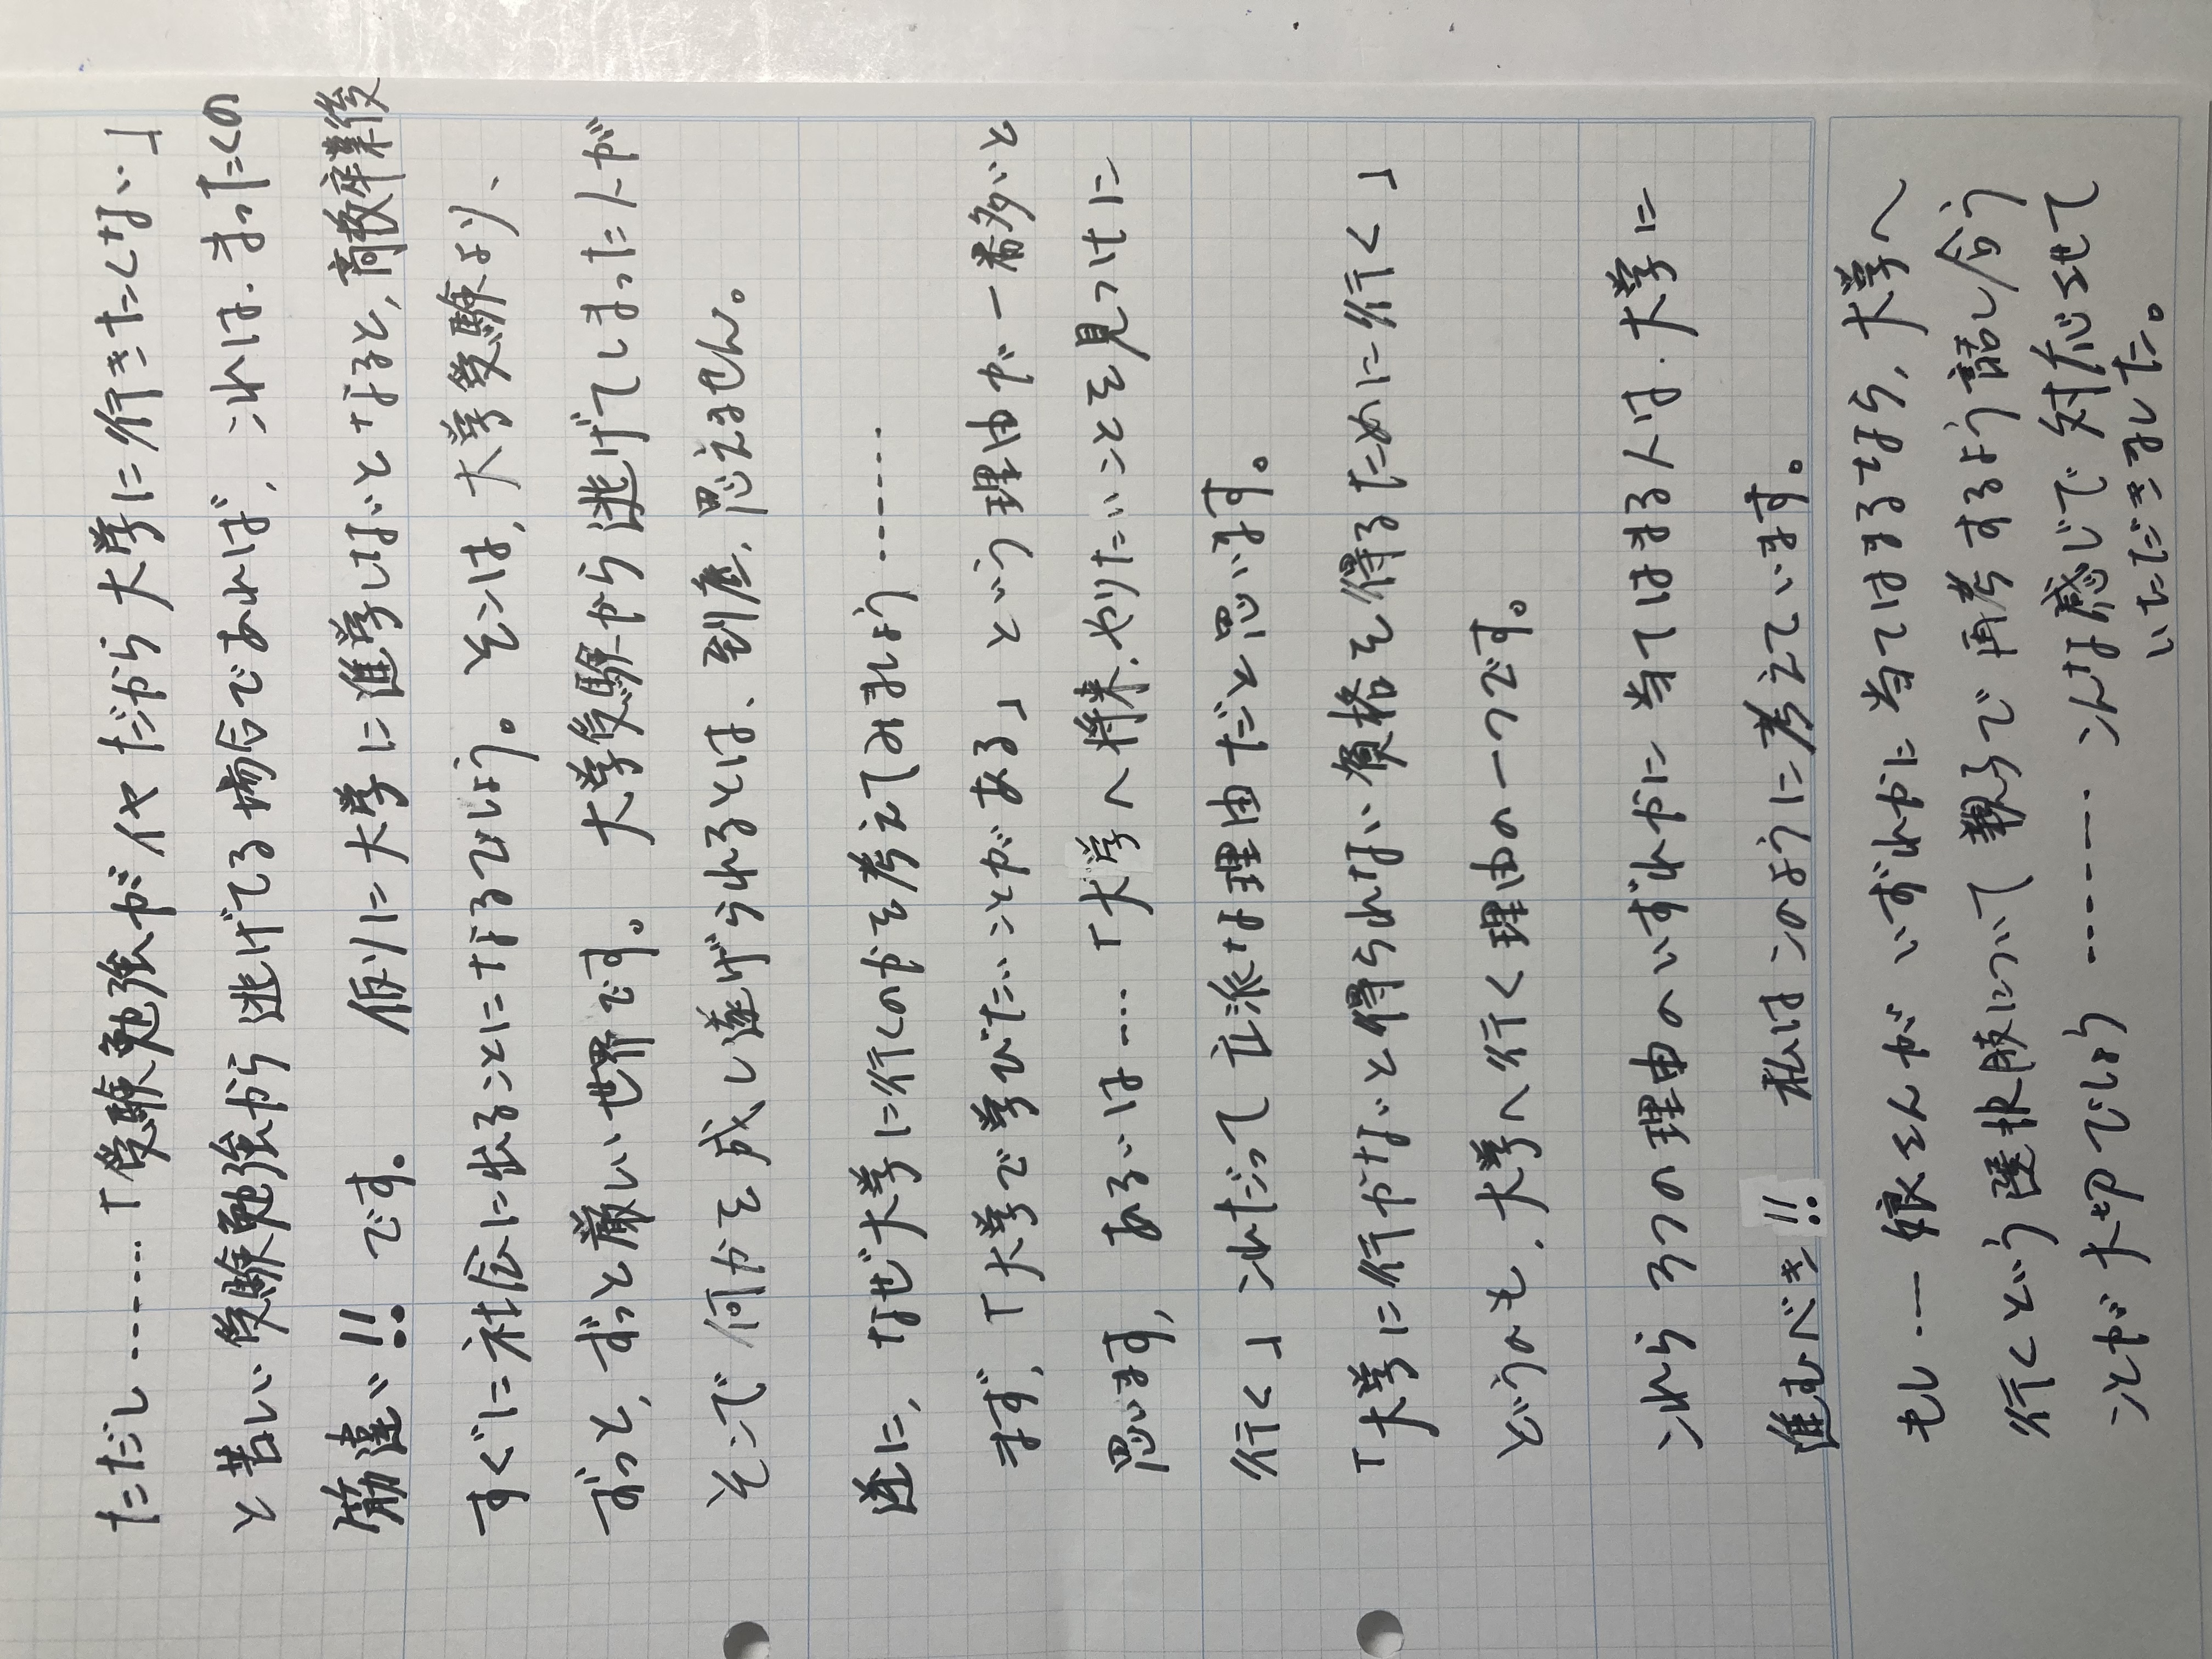 ただし………「受験勉強がイヤだから大学に行きたくない」
と苦しい受験勉強から逃げてる場合であれば、これは、まったくの
筋違い!!です。 仮りに大学に進学しないとなると、高校卒業後
すぐに社会に出ることになるでしょう。そこは、大学受験より、
ずっと、ずっと厳しい世界です。大学受験から逃げてしまった人が
そこで何かを成し遂げられるとは、到底、思えません。
逆に、なぜ大学に行くのかを考えてみましょう………
まず、「大学で学びたいことがある」という理由が一番多いと
思います、あるいは…「大学へ将来、やりたいことを見つけに
行く」これだって立派な理由だと思います。
「大学に行かないと得られない資格を得るために行く」
というのも、大学へ行く理由の一つです。
これら3つの理由のいずれかに当てはまる人は、大学に
進むべき!! 私はこのように考えています。
もし…娘さんがいずれかに当てはまるなら、大学へ
行くという選択肢について親子で再考するよう話し合う
ことが大切でしょう………こんな感じで対応させて
いただきました。